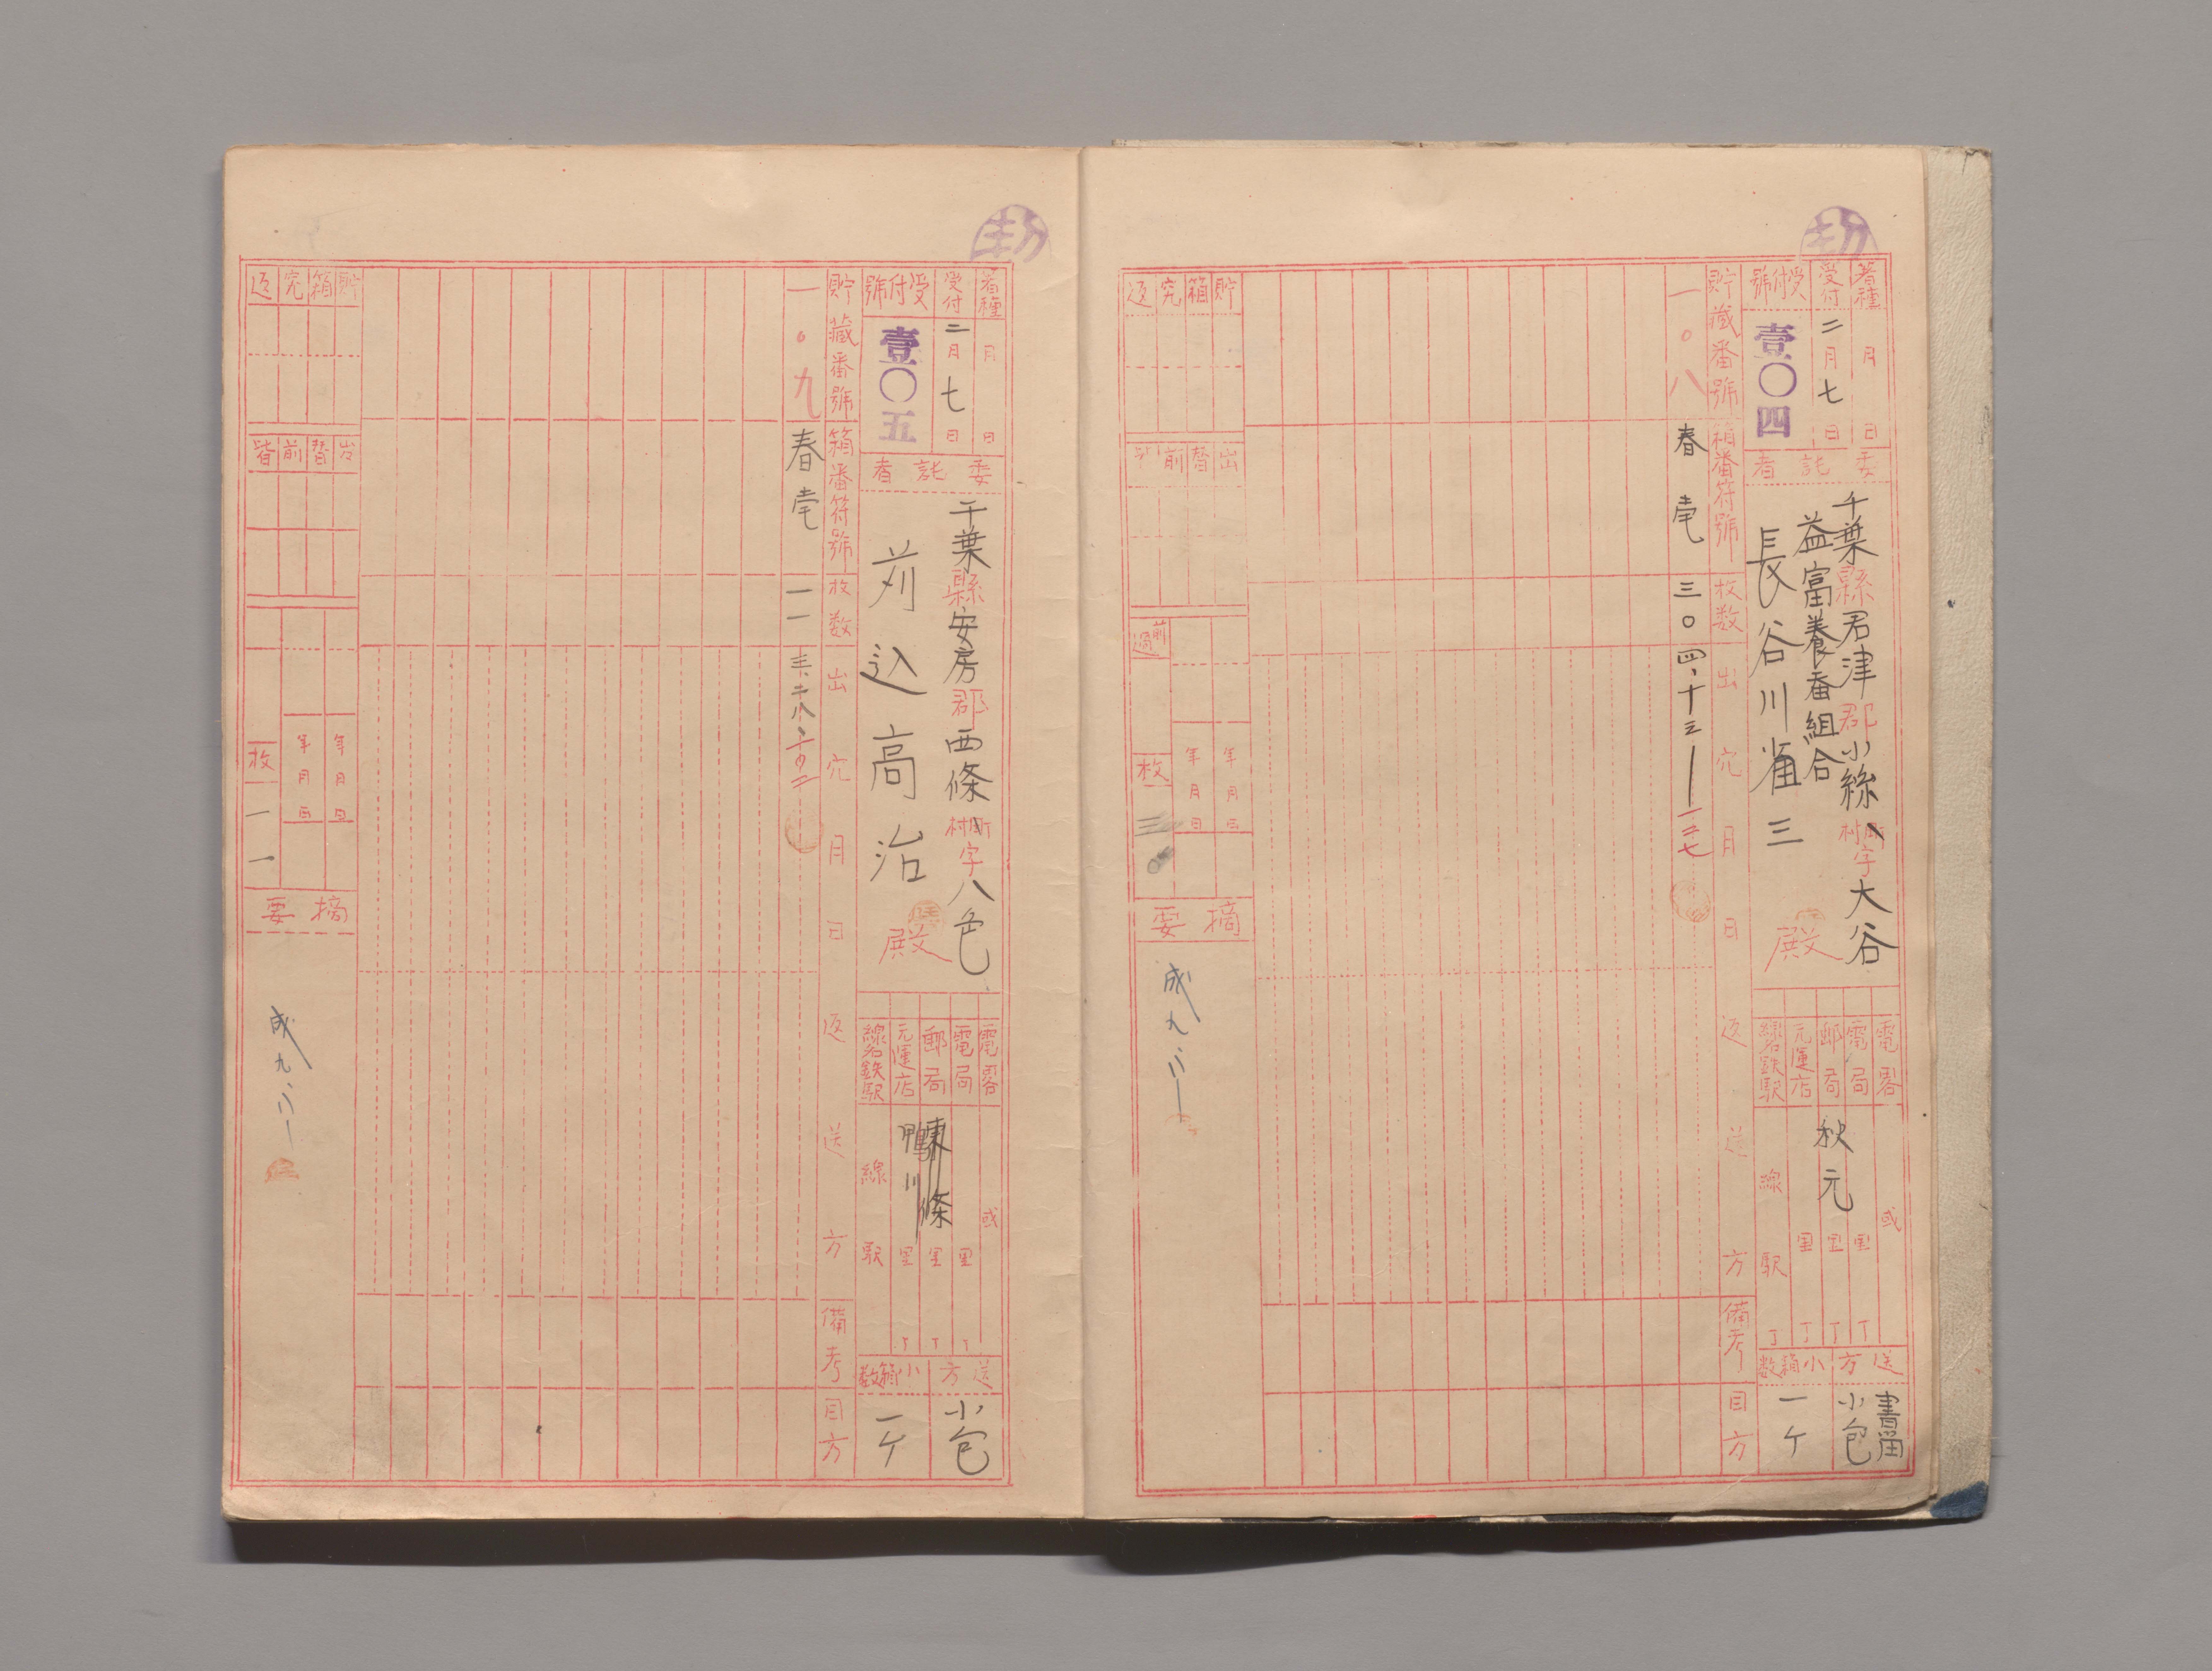 着種 月 日
受付 二月七日
受付號 壹〇四
委託者
千葉縣君津郡小絲町村字大谷
益富養蚕組合
長谷川雀三 殿
電畧 或
電局 秋元 里 丁
郵局 里 丁
元運店 里 丁
線名鉄駅 線 駅 丁
送方 書留 小包
小箱数 一ケ
貯藏番號 一〇八
箱番符號 春壱
枚数 三〇
出穴月日返送方 四、十三
備考
目方
貯箱究返
出替前
前過
年月日
年月日
枚 三〇
摘要
成九、二、一
着種 月 日
受付 二月七日
受付號 壹〇五
委託者
千葉縣安房郡西條町村字八色
苅込高治 殿
電畧 或
電局 里 丁
郵局 東條 里 丁
元運店 鴨川 里 丁
線名鉄駅 線 駅
送方 小包
小箱数 一ケ
貯藏番號 一〇九
箱番符號 春壱
枚数 一一
出穴月日返送方 三、二八、
備考
目方
貯箱究返
替前
年月日
年月日
枚 一一
摘要
成九、二、一